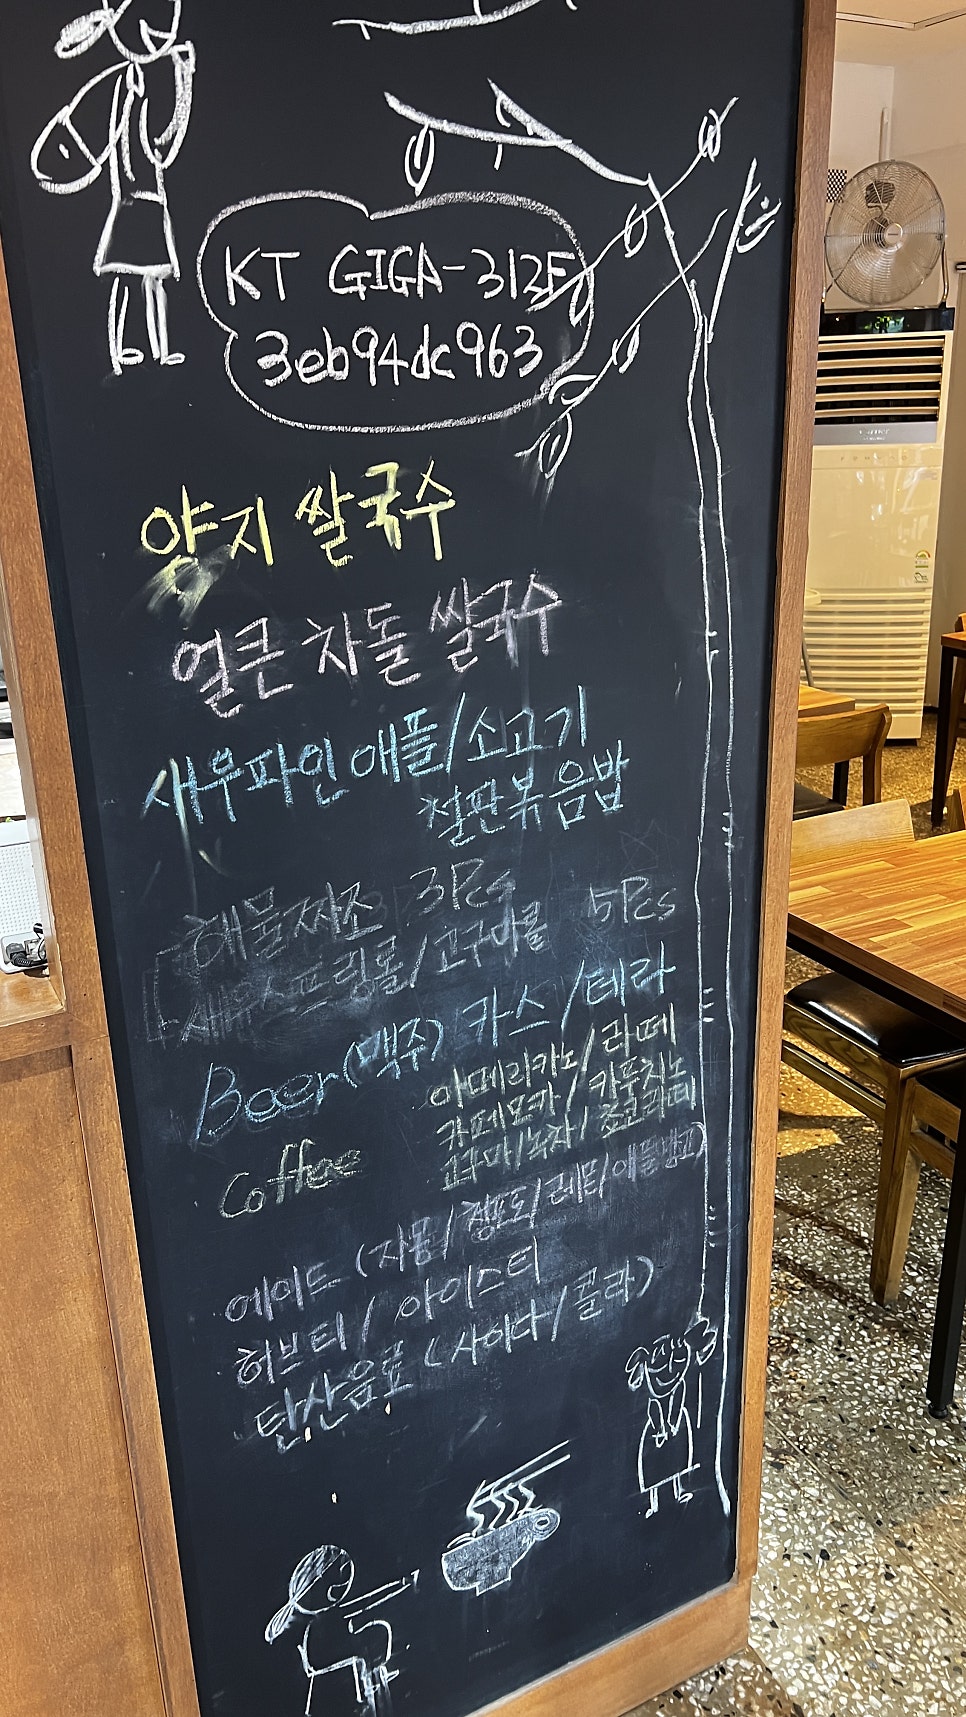 KT GIGA-312F
3eb94dc963
양지 쌀국수
얼큰 차돌 쌀국수
새우파인애플/소고기
철판볶음밥
해물짜조 3Pcs
새우스프링롤/고구마롤 5Pcs
Beer(맥주) 카스/테라
Coffee 아메리카노/라떼
카페모카/카푸치노
고구마/녹차/초코라떼
에이드 (자몽/청포도/레몬/애플망고)
허브티/아이스티
탄산음료 (사이다/콜라)